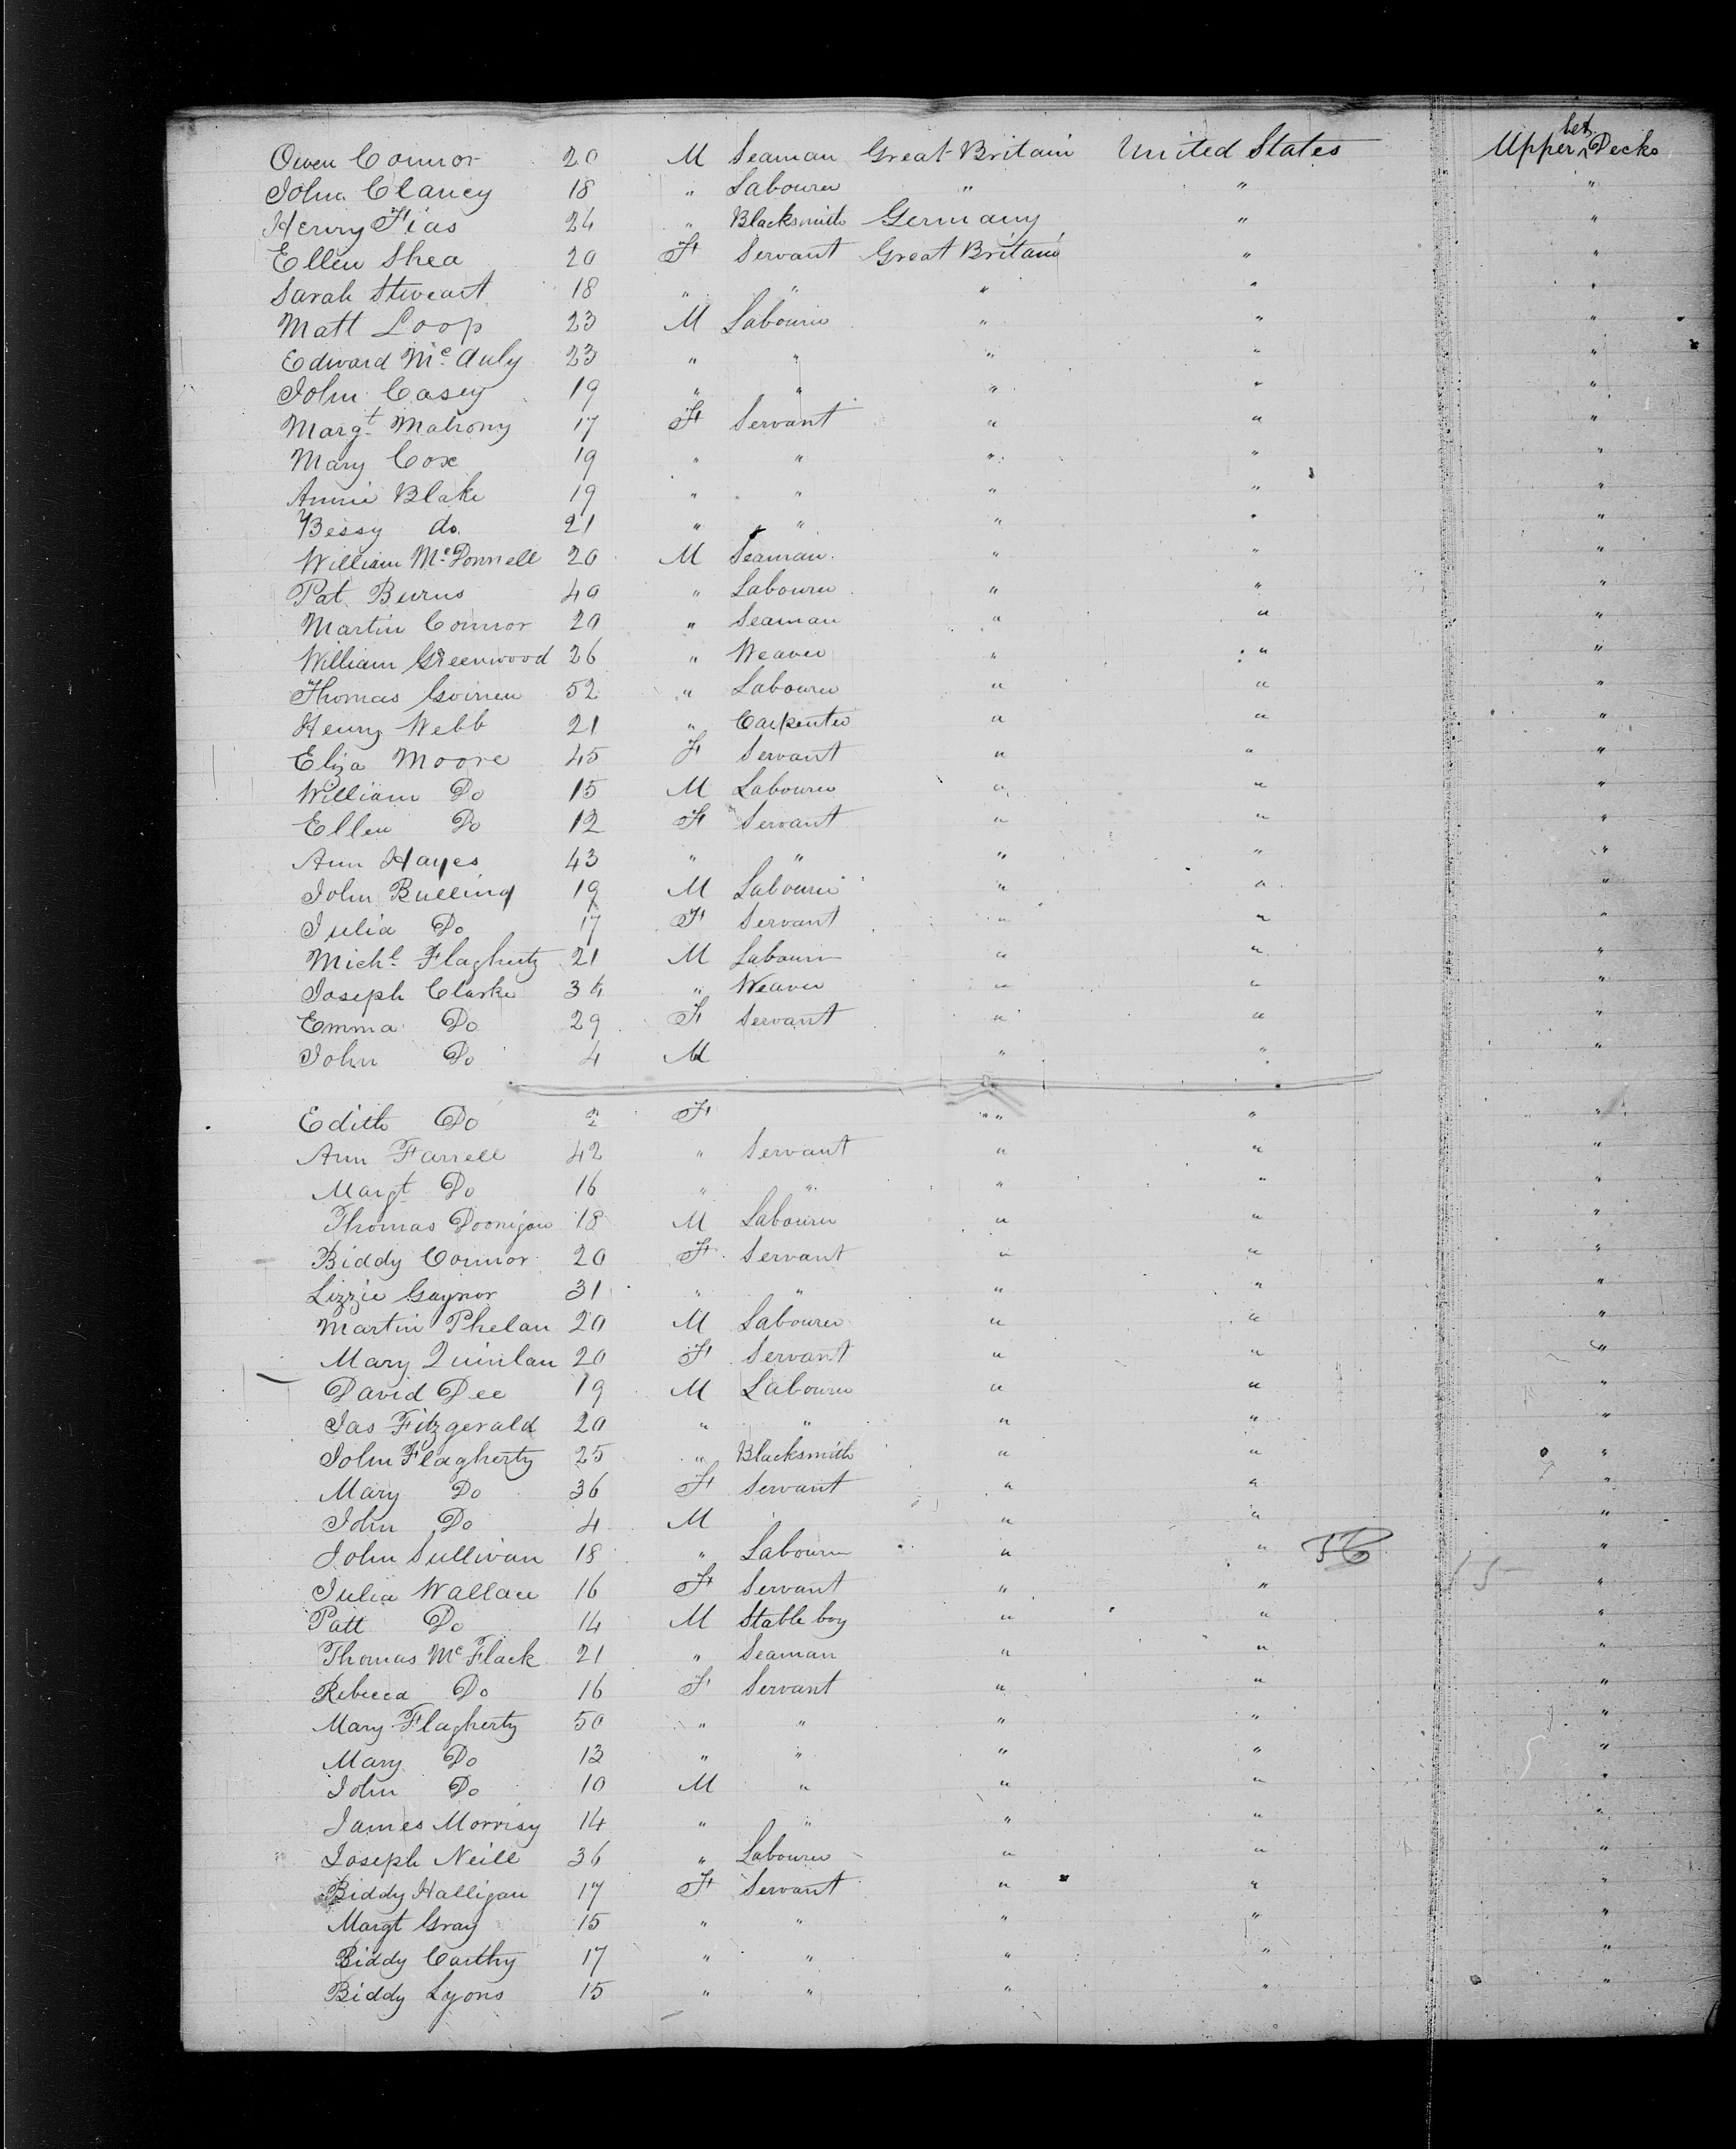 Owen Connor 20 M Seaman Great Britain United States Upper bet Decks
John Clancy 18 " Labourer " " "
Henry Fias 24 " Blacksmith Germany " "
Ellen Shea 20 F Servant Great Britain " "
Sarah Stweart 18 " " " " "
Matt Loop 23 M Labourer " " "
Edward Mc Auly 23 " " " " "
John Casey 19 " " " " "
Margt Mahony 17 F Servant " " "
Mary Cox 19 " " " " "
Annie Blake 19 " " " " "
Bessy do. 21 " " " " "
William McDonnell 20 M Seaman " " "
Pat Burns 40 " Labourer " " "
Martin Connor 20 " Seaman " " "
William Greenwood 26 " Weaver " " "
Thomas 52 " Labourer " " "
Henry Webb 21 " Carpenter " " "
Eliza Moore 45 F Servant " " "
William Do 15 M Labourer " " "
Ellen Do 12 F Servant " " "
Ann Hayes 43 " " " " "
John Bulling 19 M Labourer " " "
Julia Do 17 F Servant " " "
Michl Flagherty 21 M Labourer " " "
Joseph Clarke 34 " Weaver " " "
Emma Do 29 F Servant " " "
John Do 4 M " " "
Edith Do 2 F " " "
Ann Farrell 42 " Servant " " "
Margt Do 16 " " " " "
Thomas Doonigan 18 M Labourer " " "
Biddy Connor 20 F Servant " " "
Lizzie Gaynor 31 " " " " "
Martin Phelan 20 M Labourer " " "
Mary Quinlan 20 F Servant " " "
David Dee 19 M Labourer " " "
Jas Fitzgerald 20 " " " " "
John Flagherty 25 " Blacksmith " " "
Mary Do 36 F Servant " " "
John Do 4 M " " "
John Sullivan 18 " Labourer " " "
Julia Wallace 16 F Servant " " "
Patt Do 14 M Stable boy " " "
Thomas Mc Flack 21 " Seaman " " "
Rebecca Do 16 F Servant " " "
Mary Flagherty 50 " " " " "
Mary Do 13 " " " " "
John Do 10 M " " " "
James Morrisy 14 " " " " "
Joseph Neill 36 " Labourer " " "
Biddy Halligan 17 F Servant " " "
Margt Gray 15 " " " " "
Biddy Carthy 17 " " " " "
Biddy Lyons 15 " " " " "